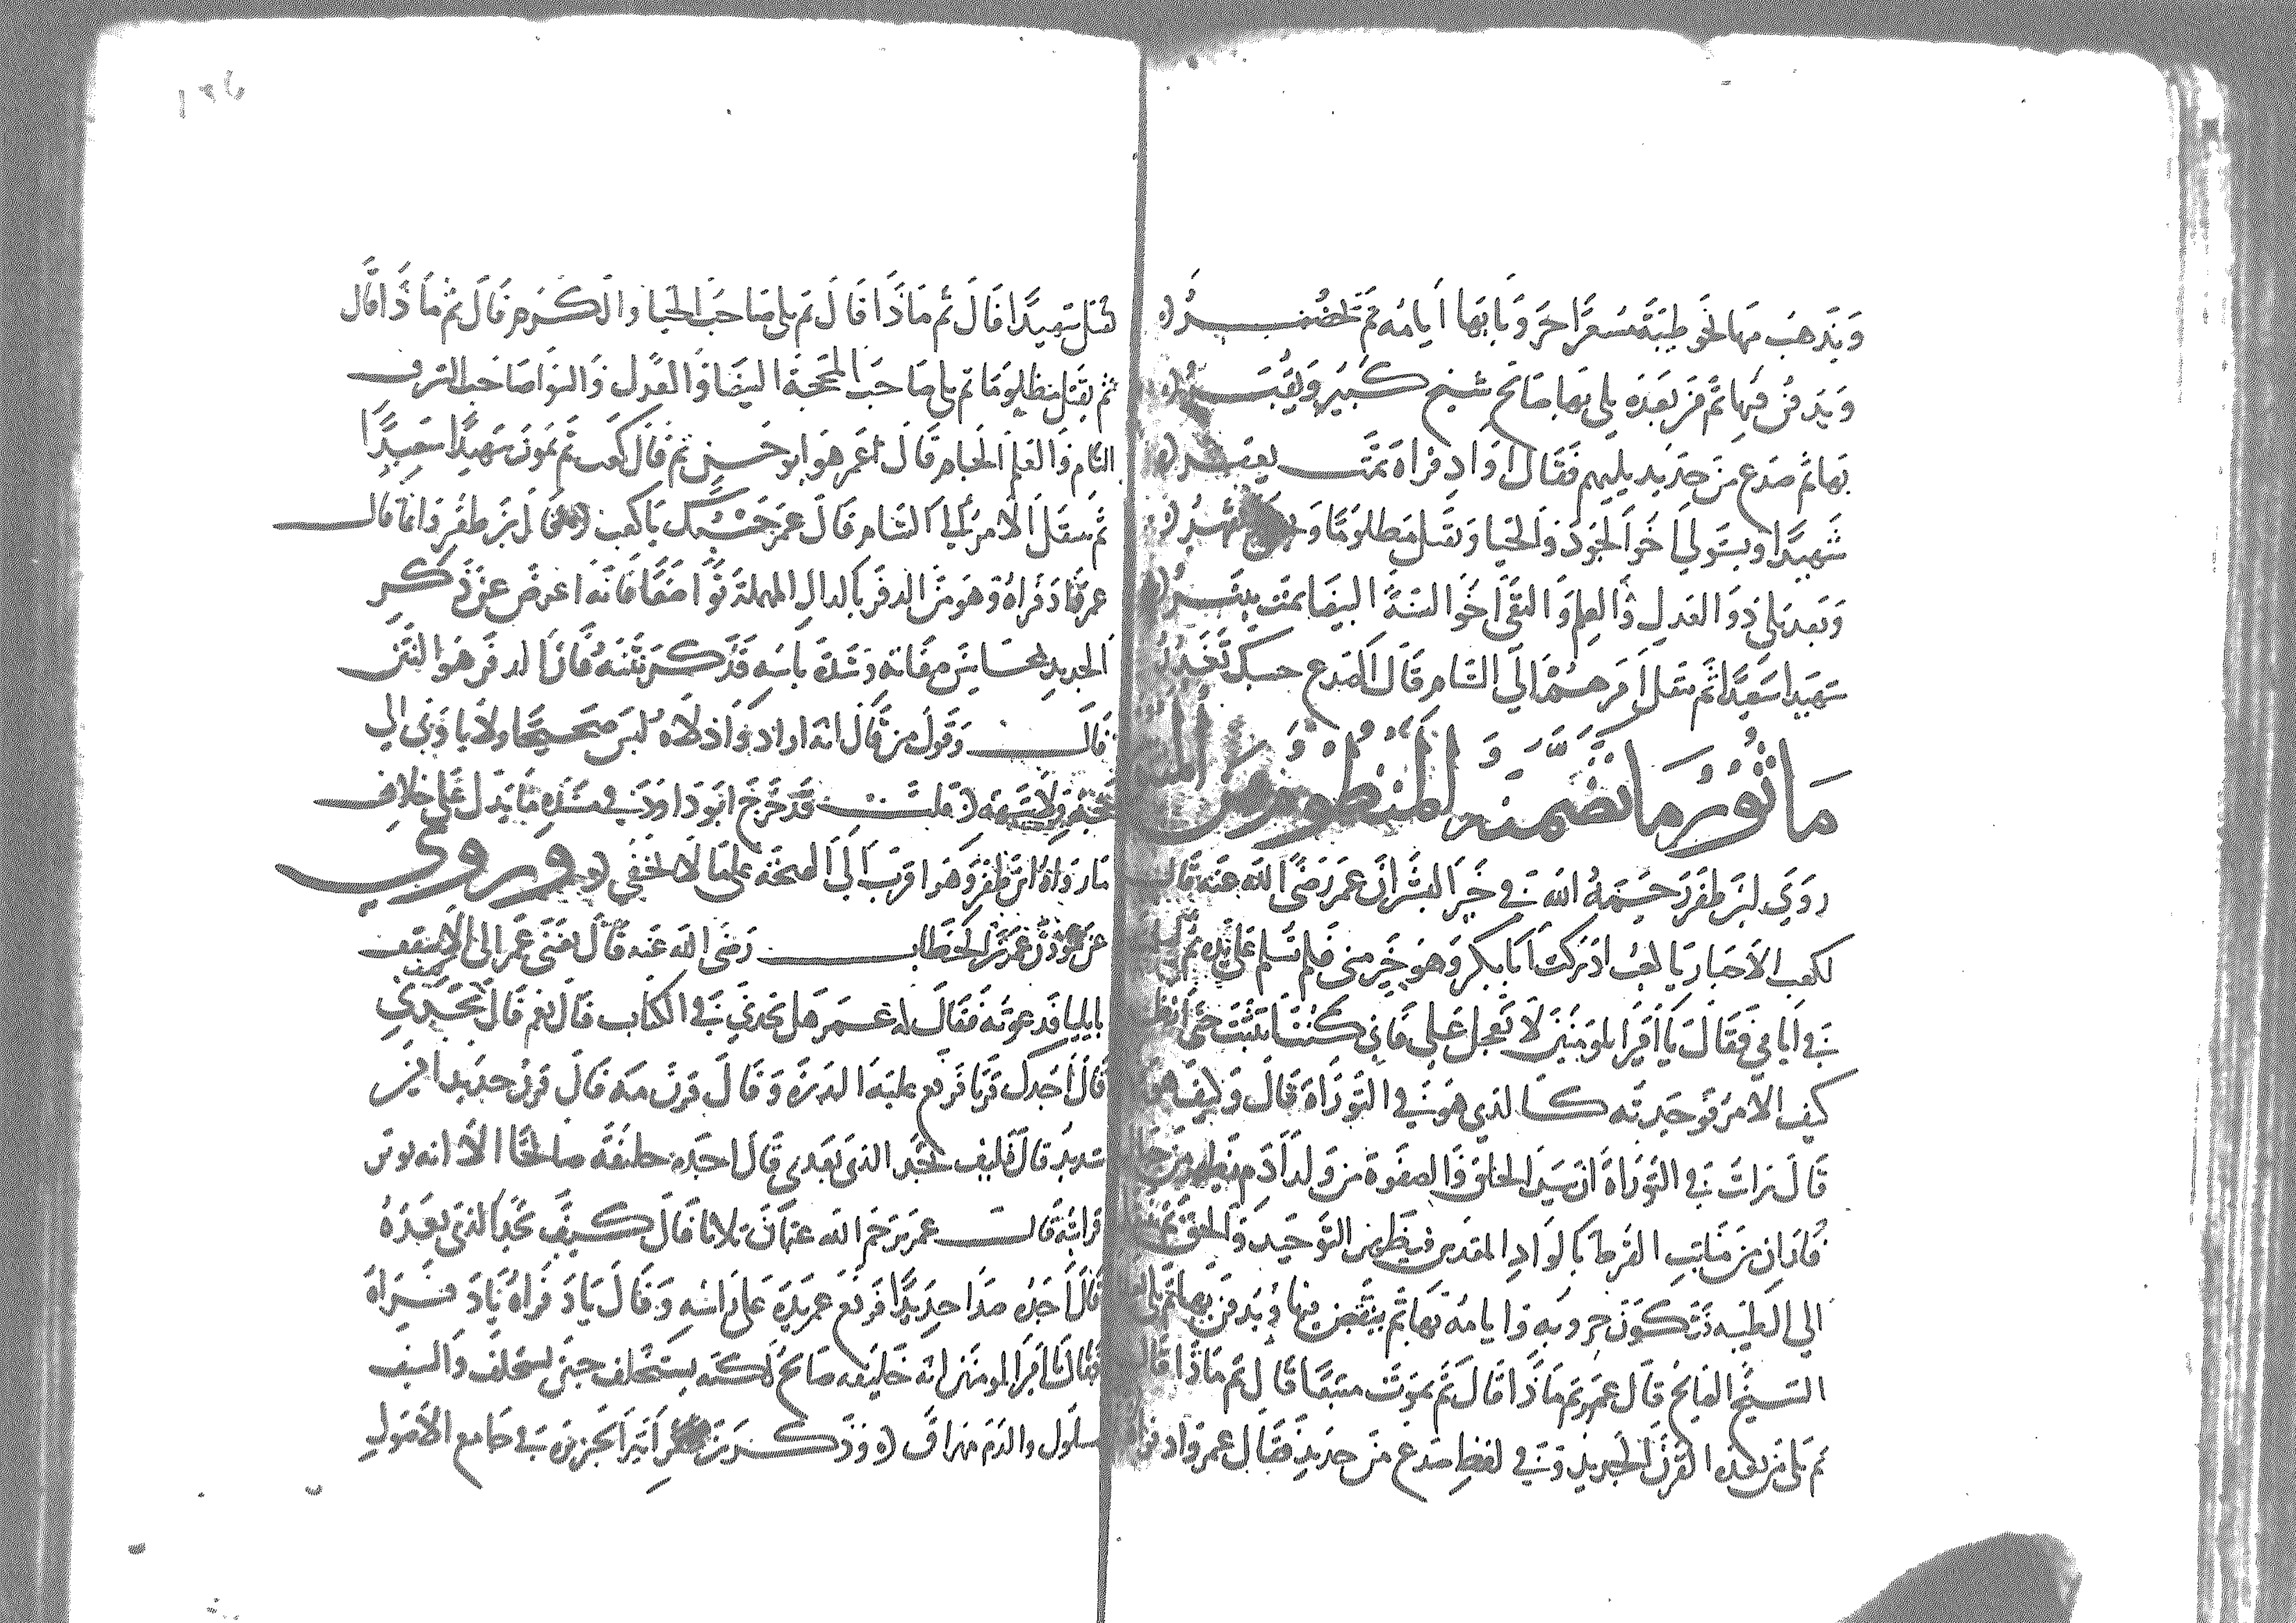 ويذهب منها نحو طيبة مسعرا حروبا بها أيامه ثم تحضر
ويدفن فيها ثم من بعده يلي بها صالح شيخ كبير ويقبر
بها ثم صدع من حديد يليهم فقال اواد فراه تمت يعفر
شهيدا ويستولي اخو الجود والحيا ويقتل مظلوما
وبعد يلي ذو العدل والعلم والتقى اخو السنة البيضا يمت
شهيدا سعيدا ثم ينقل امرهم الى الشام قال الصدع حسبك تخبر
ماثور ما تضمنه المنظوم من
روى ابن ظفر رحمه الله في خير البشر ان عمر رضي الله عنه قال
لكعب الاحبار يا كعب ادركت ابا بكر وهو خير مني فلم تسلم على يده ثم
في ايامي فقال يا امير المومنين لا تعجل علي فاني كنت اتثبت حتى انظر
كيف الامر فوجدته كالذي هو في التوراة قال وكيف هو
قال رايت في التوراة ان سيد الخلق والصفوة من ولد ادم يظهر من جبال
فاران من منابت القرظ بالوادي المقدس فيظهر التوحيد والحق ثم ينتقل
الى طيبة فتكون حروبه وايامه بها ثم يقبض فيها ويدفن بها ثم يلي
الشيخ الصالح قال عمر ثم ماذا قال ثم يموت متبعا قال ثم ماذا قال
ثم يلي من بعده القرن الحديد وفي لفظ صدع من حديد فقال عمر واد فراه
يقتل شهيدا قال ثم ماذا قال ثم يلي صاحب الحيا والكرم قال ثم ماذا قال
ثم يقتل مظلوما ثم يلي صاحب المحجة البيضا والعدل والسوا صاحب الشرف
التام والعلم الجام قال عمر هو ابو حسن ثم قال كعب ثم يموت شهيدا سعيدا
ثم ينقل الامر الى الشام قال عمر حسبك يا كعب قال ابن ظفر واما قال
عمر واد فراه وهو من الدفر بالدال المهملة تواضعا فانه اعرض عن ذكر
الحديد لمحاسن صفاته وشدة باسه قد كره نتنه فان الدفر هو النتن
قال وقول من قال انه اراد واذلاه ليس صحيحا ولا ياوي الى
حجة ولا شبهه قلت قد خرج ابو داود في سننه ما يدل على خلاف
ما رواه ابن ظفر وهو اقرب الى الصحة علما لا يخفى وروي
عن موذن عمر بن الخطاب رضي الله عنه قال بعثني عمر الى الاسقف
بايليا فدعوته فقال له عمر هل تجدني في الكتاب قال نعم قال كيف تجدني
قال اجدك قرنا فرفع عليه الدرة وقال قرن مه قال قرن حديد امين
شديد قال فكيف تجد الذي بعدي قال اجده خليفة صالحا الا انه يوثر
قرابته قال عمر يرحم الله عثمان ثلاثا قال كيف تجد الذي بعده
قال اجده صدا حديدا فرفع عمر يده على راسه وقال يا دفراه يا دفراه
فقال يا امير المومنين انه خليفة صالح لكنه يستخلف حين يستخلف والسيف
مسلول والدم مهراق وذكر ابن اثير الجزري في جامع الاصول